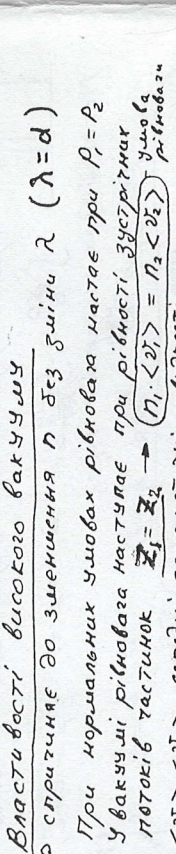 Властивості високого вакууму
спричиняє до зменшення n без зміни λ (λ=d)
При нормальних умовах рівновага настає при P₁=P₂
У вакуумі рівновага наступає при рівності зустрічних
потоків частинок Z₁=Z₂ → (n₁·<v₁> = n₂<v₂>) умова
рівноваги